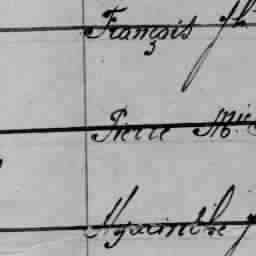 François
Pierre Mic
Hyacinthe